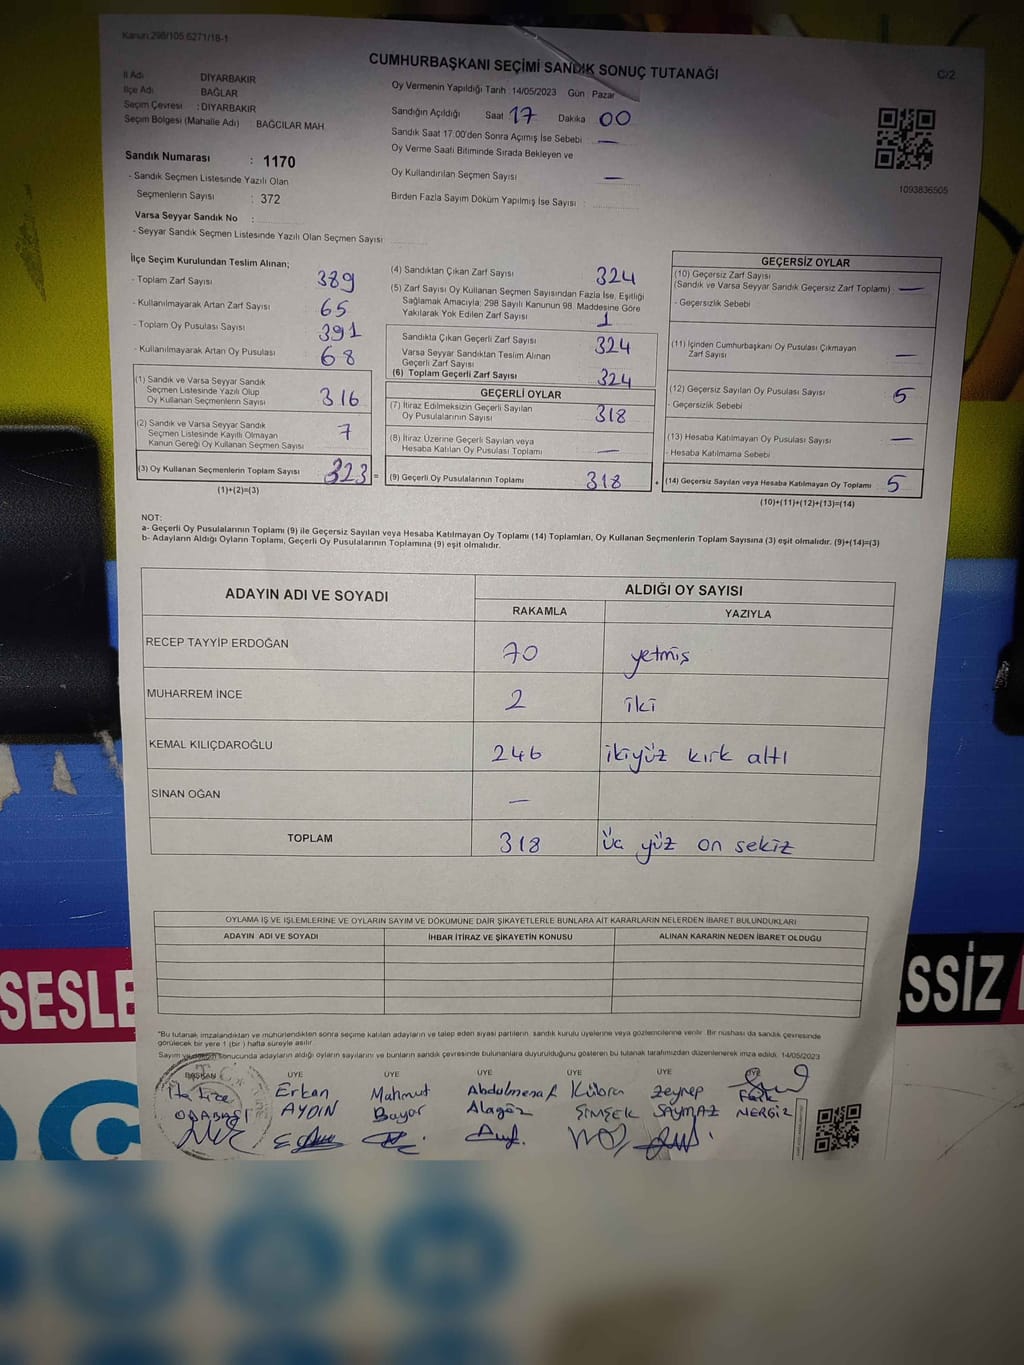 Kanun 298/105 6271/18-1
CUMHURBAŞKANI SEÇİMİ SANDIK SONUÇ TUTANAĞI
C/2
İl Adı DİYARBAKIR
İlçe Adı BAĞLAR
Seçim Çevresi : DİYARBAKIR
Seçim Bölgesi (Mahalle Adı) BAĞCILAR MAH.
Sandık Numarası : 1170
- Sandık Seçmen Listesinde Yazılı Olan
Seçmenlerin Sayısı : 372
Varsa Seyyar Sandık No :
- Seyyar Sandık Seçmen Listesinde Yazılı Olan Seçmen Sayısı
Oy Vermenin Yapıldığı Tarih 14/05/2023 Gün Pazar
Sandığın Açıldığı Saat 17 Dakika 00
Sandık Saat 17.00'den Sonra Açımış İse Sebebi —
Oy Verme Saati Bitiminde Sırada Bekleyen ve
Oy Kullandırılan Seçmen Sayısı —
Birden Fazla Sayım Döküm Yapılmış İse Sayısı :
1093836505
İlçe Seçim Kurulundan Teslim Alınan;
- Toplam Zarf Sayısı 389
- Kullanılmayarak Artan Zarf Sayısı 65
- Toplam Oy Pusulası Sayısı 391
- Kullanılmayarak Artan Oy Pusulası 68
(1) Sandık ve Varsa Seyyar Sandık
Seçmen Listesinde Yazılı Olup
Oy Kullanan Seçmenlerin Sayısı 316
(2) Sandık ve Varsa Seyyar Sandık
Seçmen Listesinde Kayıtlı Olmayan
Kanun Gereği Oy Kullanan Seçmen Sayısı 7
(3) Oy Kullanan Seçmenlerin Toplam Sayısı 323 =
(1)+(2)=(3)
(4) Sandıktan Çıkan Zarf Sayısı 324
(5) Zarf Sayısı Oy Kullanan Seçmen Sayısından Fazla İse, Eşitliği
Sağlamak Amacıyla; 298 Sayılı Kanunun 98. Maddesine Göre
Yakılarak Yok Edilen Zarf Sayısı 1
Sandıkta Çıkan Geçerli Zarf Sayısı 324
Varsa Seyyar Sandıktan Teslim Alınan
Geçerli Zarf Sayısı
(6) Toplam Geçerli Zarf Sayısı 324
GEÇERLİ OYLAR
(7) İtiraz Edilmeksizin Geçerli Sayılan
Oy Pusulalarının Sayısı 318
(8) İtiraz Üzerine Geçerli Sayılan veya
Hesaba Katılan Oy Pusulası Toplamı —
(9) Geçerli Oy Pusulalarının Toplamı 318 +
GEÇERSİZ OYLAR
(10) Geçersiz Zarf Sayısı
(Sandık ve Varsa Seyyar Sandık Geçersiz Zarf Toplamı) —
- Geçersizlik Sebebi
(11) İçinden Cumhurbaşkanı Oy Pusulası Çıkmayan
Zarf Sayısı —
(12) Geçersiz Sayılan Oy Pusulası Sayısı 5
- Geçersizlik Sebebi
(13) Hesaba Katılmayan Oy Pusulası Sayısı —
- Hesaba Katılmama Sebebi
(14) Geçersiz Sayılan veya Hesaba Katılmayan Oy Toplamı 5
(10)+(11)+(12)+(13)=(14)
NOT:
a- Geçerli Oy Pusulalarının Toplamı (9) ile Geçersiz Sayılan veya Hesaba Katılmayan Oy Toplamı (14) Toplamları, Oy Kullanan Seçmenlerin Toplam Sayısına (3) eşit olmalıdır. (9)+(14)=(3)
b- Adayların Aldığı Oyların Toplamı, Geçerli Oy Pusulalarının Toplamına (9) eşit olmalıdır.
ADAYIN ADI VE SOYADI ALDIĞI OY SAYISI
RAKAMLA YAZIYLA
RECEP TAYYİP ERDOĞAN 70 yetmiş
MUHARREM İNCE 2 iki
KEMAL KILIÇDAROĞLU 246 ikiyüz kırk altı
SİNAN OĞAN —
TOPLAM 318 üç yüz on sekiz
OYLAMA İŞ VE İŞLEMLERİNE VE OYLARIN SAYIM VE DÖKÜMÜNE DAİR ŞİKAYETLERLE BUNLARA AİT KARARLARIN NELERDEN İBARET BULUNDUKLARI
ADAYIN ADI VE SOYADI İHBAR İTİRAZ VE ŞİKAYETİN KONUSU ALINAN KARARIN NEDEN İBARET OLDUĞU
SESLE
SSİZ
"Bu tutanak imzalandıktan ve mühürlendikten sonra seçime katılan adayların ve talep eden siyasi partilerin sandık kurulu üyelerine veya gözlemcilerine verilir. Bir nüshası da sandık çevresinde
görülecek bir yere 1 (bir) hafta süreyle asılır.
Sayım ve döküm sonucunda adayların aldığı oyların sayılarını ve bunların sandık çevresinde bulunanlara duyurulduğunu gösteren bu tutanak tarafımızdan düzenlenerek imza edildi. 14/05/2023
BAŞKAN ÜYE ÜYE ÜYE ÜYE ÜYE ÜYE
Erkan Mahmut Abdulmenaf Kübra Zeynep
ODABAŞI AYDIN Bayar Alagöz ŞİMŞEK SAYMAZ NERGİZ